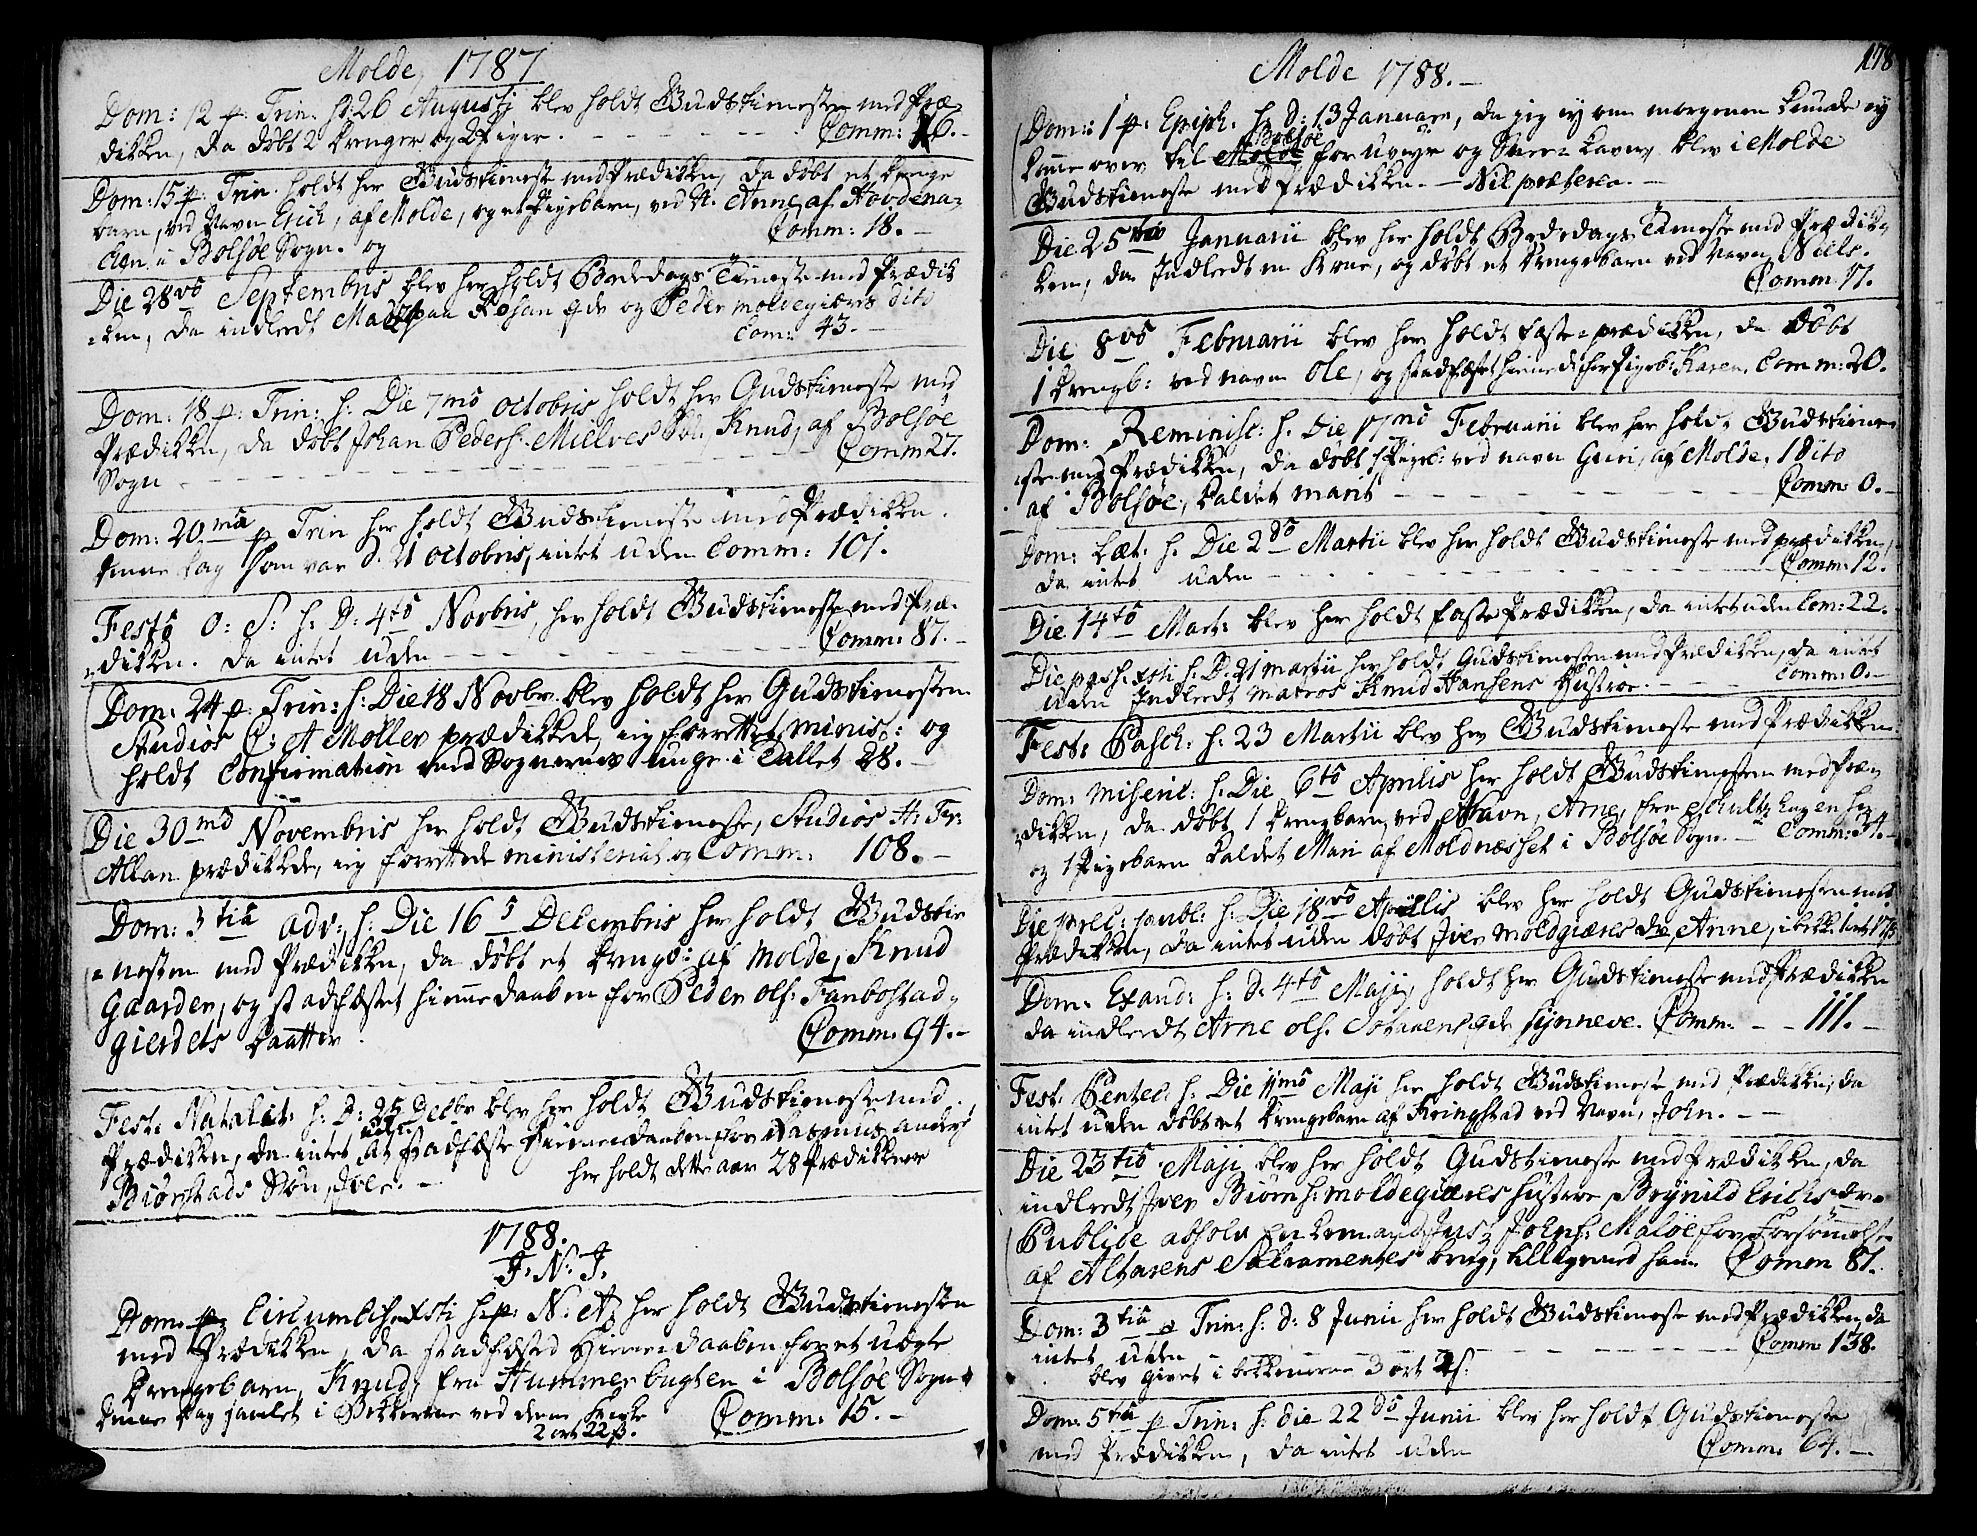 Molde, 1787
Dom: 12 p. Trin. h: 26 Augustj blev holdt Gudstieneste med Præ-
diken, da døbt 2 drenger og 2 Piger. Comm: 16.
Dom: 15 p: Trin. holdt her Gudstieneste med Prædiken, da døbt et drenge
barn, ved Navn Erich, af Molde, og et Pigebarn, ved N. Anne, af Hovdena-
chen i Bolsøe Sogn. og Comm: 18.
Die 28vo Septembris blev her holdt Bededags Tieneste med Prædik
-ken, da indledt Mads Rohan qde og Peder moldegiærs dito
Com: 43.
Dom: 18 p: Trin: h. Die 7mo octobris holdt her Gudstieneste med
Prædiken, da døbt Johan Peders: Mielves Søn Knud, af Bolsøe
Sogn Comm 27.
Dom: 20ma p Trin her holdt Gudstieneste med Prædiken.
denne dag som var d. 21 octobris, intet uden Comm: 101.
Festo O: S: h: D: 4to Novbris, her holdt Gudstieneste med Præ-
diken. da intet uden Comm: 87.
Dom: 24 p: Trin: h: Die 18 Novbr. blev holdt her Gudstienesten
Studios C: A Møller prædikede, jeg forrettet minist: og
holdt Confirmation med Sognernes unge i Tallet 28.
Die 30md Novembris her holdt Gudstieneste, Studios H: Fr:
Allan prædikede, jeg forrettede ministerial og Comm: 108.
Dom: 3tia adv: h: Die 16 5 Decembris her holdt Gudstie
-nesten med Prædiken, da døbt et drengb: af Molde, Knud
Gaarden, og stadfæstet hiemmedaaben for Peder ols: Fanbostad-
gierdets Daatter Comm: 94.
Fest: Natalit: h: D: 25 Decbr blev her holdt Gudstieneste med
Prædiken, da intet uden at stadfæste Hiemmedaaben for Rasmus anders
Biørstads Søn, Iver. her holdt dette aar 28 Prædikener
1788.
I. N. J.
Dom: p. Circumcis. Xsti h:p: N: A: her holdt Gudstienesten
med Prædiken, da stadfæsted Hiemmedaaben for et uægte
Drengebarn, Knud, fra Hummerbugten i Bolsøe Sogn
denne dag samlet i Bekkerne ved denne
2 ort 22 s. Comm: 15.
Molde 1788.
178
Dom: 1 p: Epiph. h: d: 13 Januarii, da jeg ey om morgenen kunde ey
komme over til Molde Bolsøe for uveyr og Snee-kaver, blev i Molde
Gudstieneste med Prædiken. Nil præterea.
Die 25to Januarii blev her holdt Bededags Tieneste med Prædik-
ken, da Indledt en Kone, og døbt et drengebarn ved Navn Niels.
Comm: 17.
Die 8vo Februarii blev her holdt faste-prædiken, da døbt
1 drengb: ved navn Ole, og stadfæstet hiemmed: for Pigeb: Karen. Comm: 20.
Dom: Reminisc: h. Die 17mo Februarii blev her holdt Gudstiene-
ste med Prædiken, da døbt 1 Pigeb: ved navn Guri, af Molde, 1 Dito
af Bolsøe, kaldet marit Comm: 0.
Dom: Læt: h. Die 2do Martii blev her holdt Gudstieneste med prædiken,
da intet uden Comm: 12.
Die 14to Mart: blev her holdt faste Prædiken, da intet uden Com: 22.
Die pass: Xsti h: D. 21 martii her holdt Gudstienesten med Prædiken, da intet
uden Indledt matros Knud Hansens Hustroe. Comm: 0.
Fest: Pasch: h: 23 Martii blev her Gudstieneste med Prædiken.
Dom: miseric: h: Die 6to Aprilis her holdt Gudstienesten med Præ-
diken, da døbt 1 drengbarn, ved Navn, Arne, fra Schultz hagen her
og 1 Pigebarn kaldet Mari af Moldnæsset i Bolsøe Sogn. Comm: 34.
Die prec: publ: h: Die 18vo Aprilis blev her holdt Gudstienesten med
Prædiken, da intet uden døbt Iver Moldgiæres dr, Anne, i bekk: 1 ort 17 s
Dom: Exaud: h: d: 4to Maji, holdt her Gudstieneste med Prædiken
da indledt Arne ols. qde Synneve. Comm: 111.
Fest: Pentec: h. Die 11mo Maji her holdt Gudstieneste med Prædiken, da
intet uden døbt et drengebarn af Kringstad ved Navn, John.
Die 23tio Maji blev her holdt Gudstieneste med Prædiken, da
indledt Iver Biørns: moldegiæres Hustroe, Brynild Erichs
Publice absolv: Johns: Maløe for Forsømmelse
af Altarens Sacramentes brug, Comm 81.
Dom: 3tia p Trin: h: d: 8 Junii her holdt Gudstieneste med Prædiken, da
intet uden Comm: 138.
blev givet i bekkenerne 3 ort 2 s.
Dom: 5ta p Trin: h: die 22do Junii blev her holdt Gudstieneste
med Prædiken, da intet uden Comm: 64.